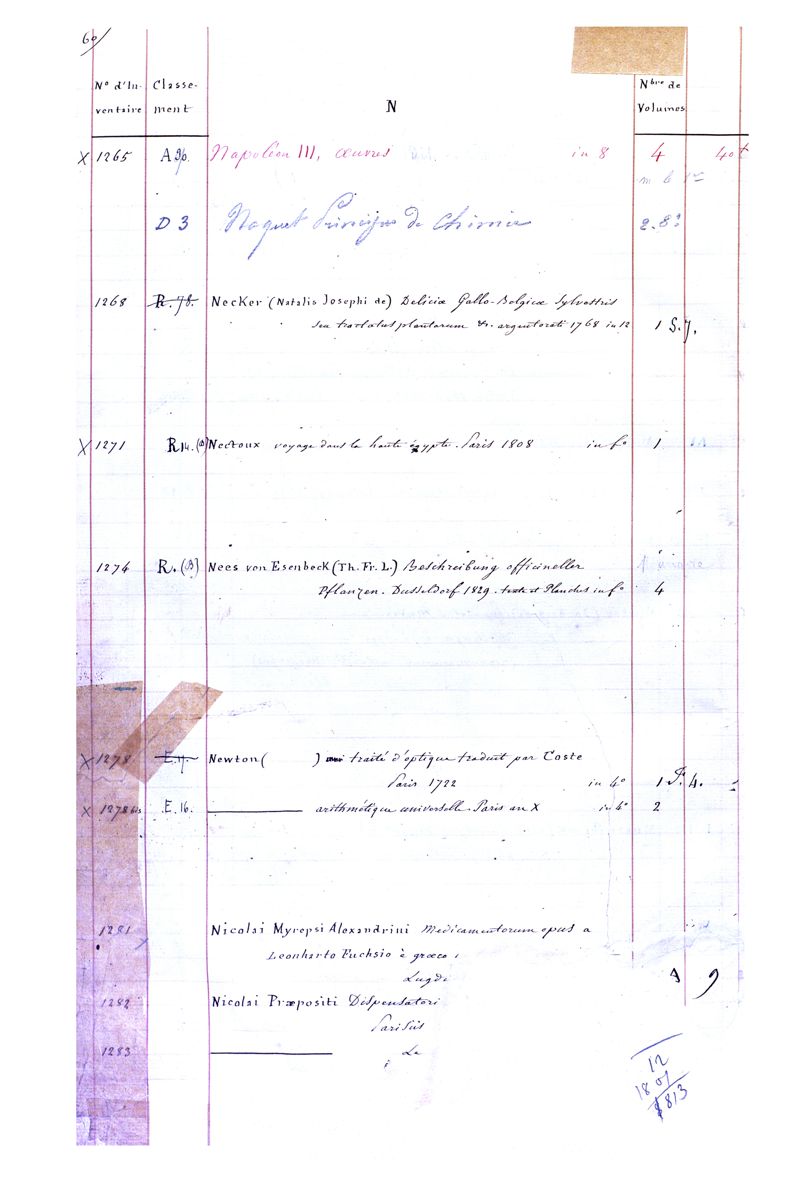 60/
N° d'Inventaire Classement N Nbre de Volumes
X 1265 A 96. Napoléon III, œuvres in 8 4 40 t
m le 1er
D 3 Naquet Principes de Chimie 2. 8°
1268 R. 78. Necker (Natalis Josephi de) Deliciæ Gallo-Belgicæ Sylvestris
seu tractatus plantarum &. argentorati 1768 in 12 1 S. 7.
X 1271 R 14. (B) Nectoux voyage dans la haute égypte. Paris 1808 in f° 1
1274 R. (B) Nees von Esenbeck (Th. Fr. L.) Beschreibung officineller
Pflanzen. Dusseldorf 1829. texte et Planches in f° 4
X 1278 E. 17. Newton ( ) traité d'optique traduit par Coste
Paris 1722 in 4° 1 F. 4.
X 1278 bis E. 16. arithmétique universelle. Paris an X in 4° 2
1281 Nicolai Myrepsi Alexandrini Medicamentorum opus a
Leonharto Fuchsio è græco
Lugd
A 9
1282 Nicolai Præpositi Dispensatori
Parisiis
1283
12
1801
1813